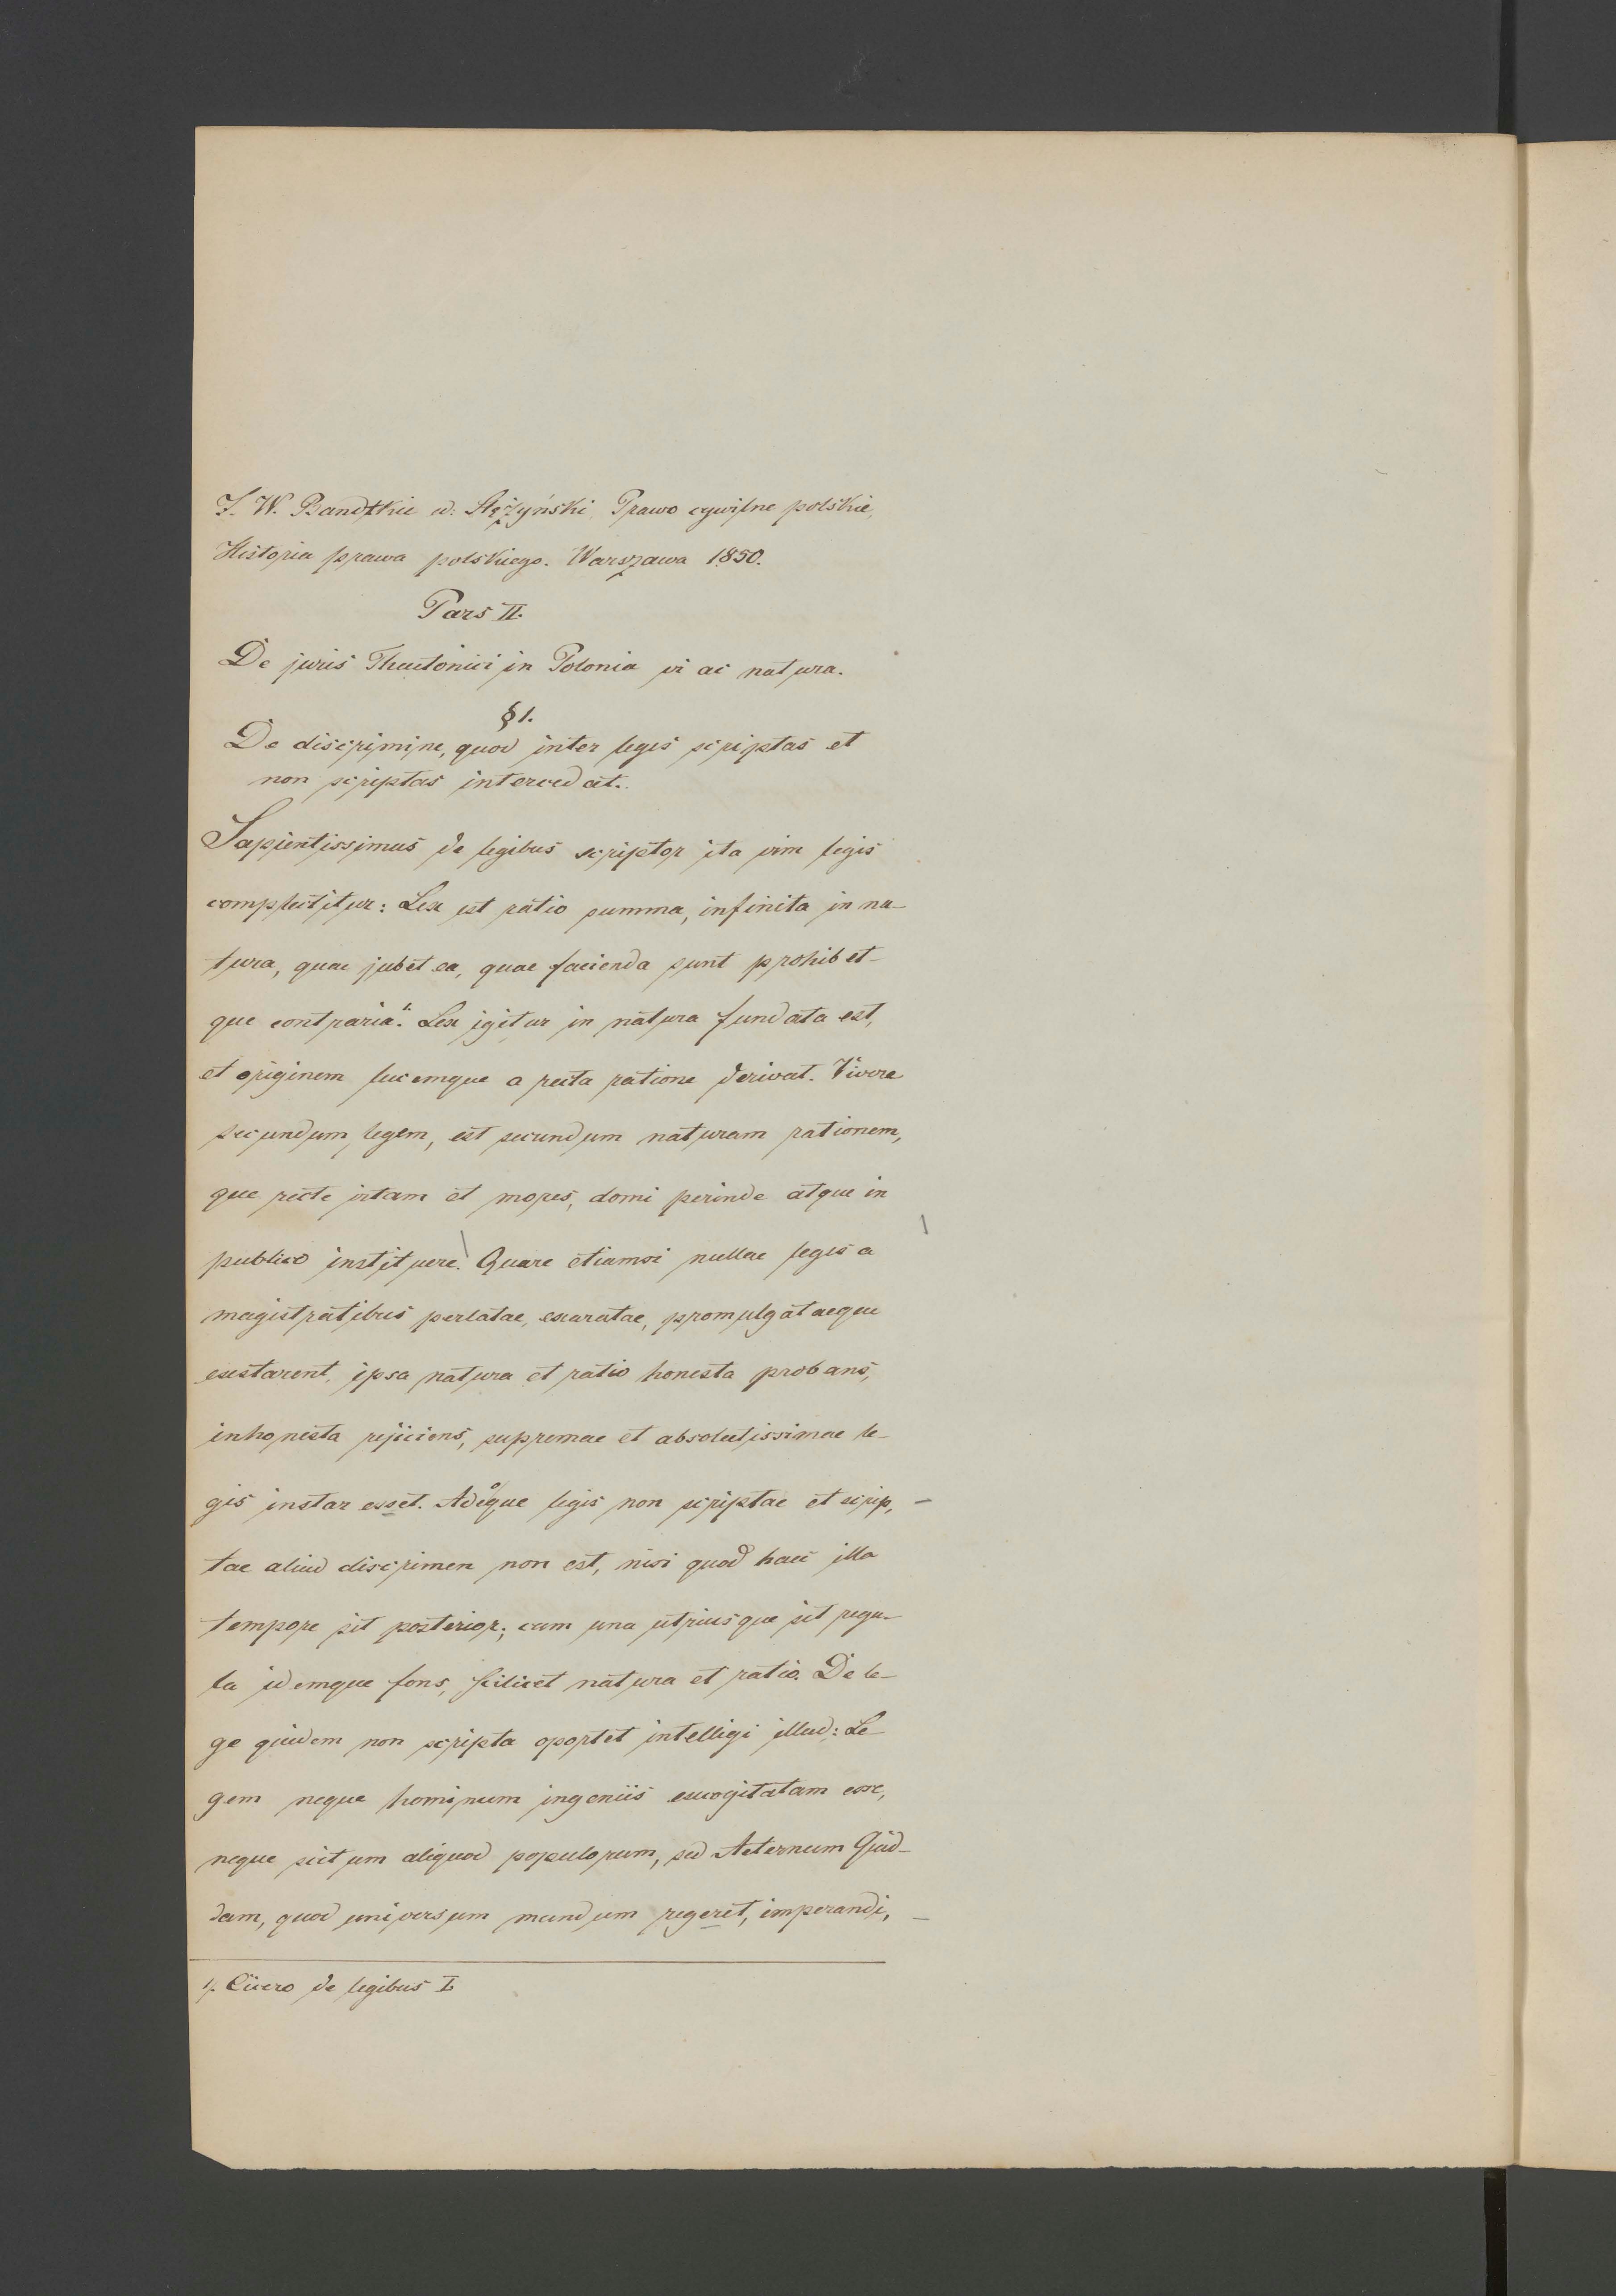 J. W. Bandtkie ed: Stężyński, Prawo cywilne polskie,
Historia prawa polskiego. Warszawa 1850.
Pars II.
De juris Theutonici in Polonia vi ac natura.
§ 1.
De discrimine, quod inter leges scriptas et
non scriptas intercedat.
Sapientissimus de legibus scriptor ita vim legis
complectitur: Lex est ratio summa, infinita in na-
tura, quae jubet ea, quae facienda sunt prohibet-
que contraria.1. Lex igitur in natura fundata est,
et originem lucemque a recta ratione derivat. Vivere
secundum legem, est secundum naturam rationem,
que recte vitam et mores, domi perinde atque in
publico instituere. Quare etiamsi nullae leges a
magistratibus perlatae, exaratae, promulgataeque
exstarent, ipsa natura et ratio honesta probans,
inhonesta rejiciens, supremae et absolutissimae le-
gis instar esset. Adeoque legis non scriptae et scrip,-
tae aliud discrimen non est, nisi quod haec illa
tempore sit posterior; cum una utriusque sit regu-
la idemque fons, scilicet natura et ratio. De le-
ge quidem non scripta oportet intelligi illud: Le-
gem neque hominum ingeniis excogitatam esse,
neque scitum aliquod populorum, sed Aeternum Quid-
dam, quod universum mundum regeret, imperandi, -
1/. Cicero de legibus I.